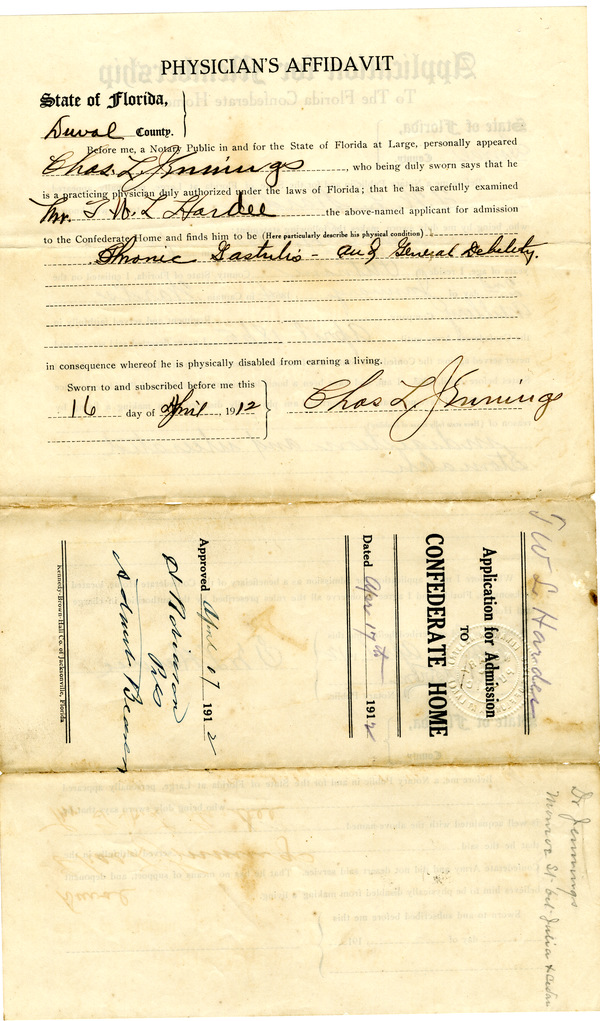 PHYSICIAN'S AFFIDAVIT
State of Florida,
Duval County.
Before me, a Notary Public in and for the State of Florida at Large, personally appeared
Chas. L. Jennings, who being duly sworn says that he
is a practicing physician duly authorized under the laws of Florida; that he has carefully examined
Mr. T W L Hardee the above-named applicant for admission
to the Confederate Home and finds him to be (Here particularly describe his physical condition)
Chronic Gastritis - and General Debility.
in consequence whereof he is physically disabled from earning a living.
Sworn to and subscribed before me this
16 day of April, 1912
Chas L. Jennings
T W L Hardee
Application for Admission
TO
CONFEDERATE HOME
Dated Apr 17th 1912
Approved April 17 1912
Robinson
Pres
Kennedy-Brown-Hall Co. of Jacksonville, Florida
Dr Jennings
Monroe St. bet Julia &